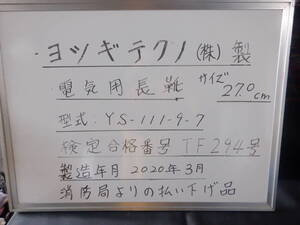 ・ヨツギテクノ(株)製
電気用長靴 サイズ27.0cm
型式:YS-111-9-7
検定合格番号 TF294号
製造年月 2020年3月
消防局よりの払い下げ品